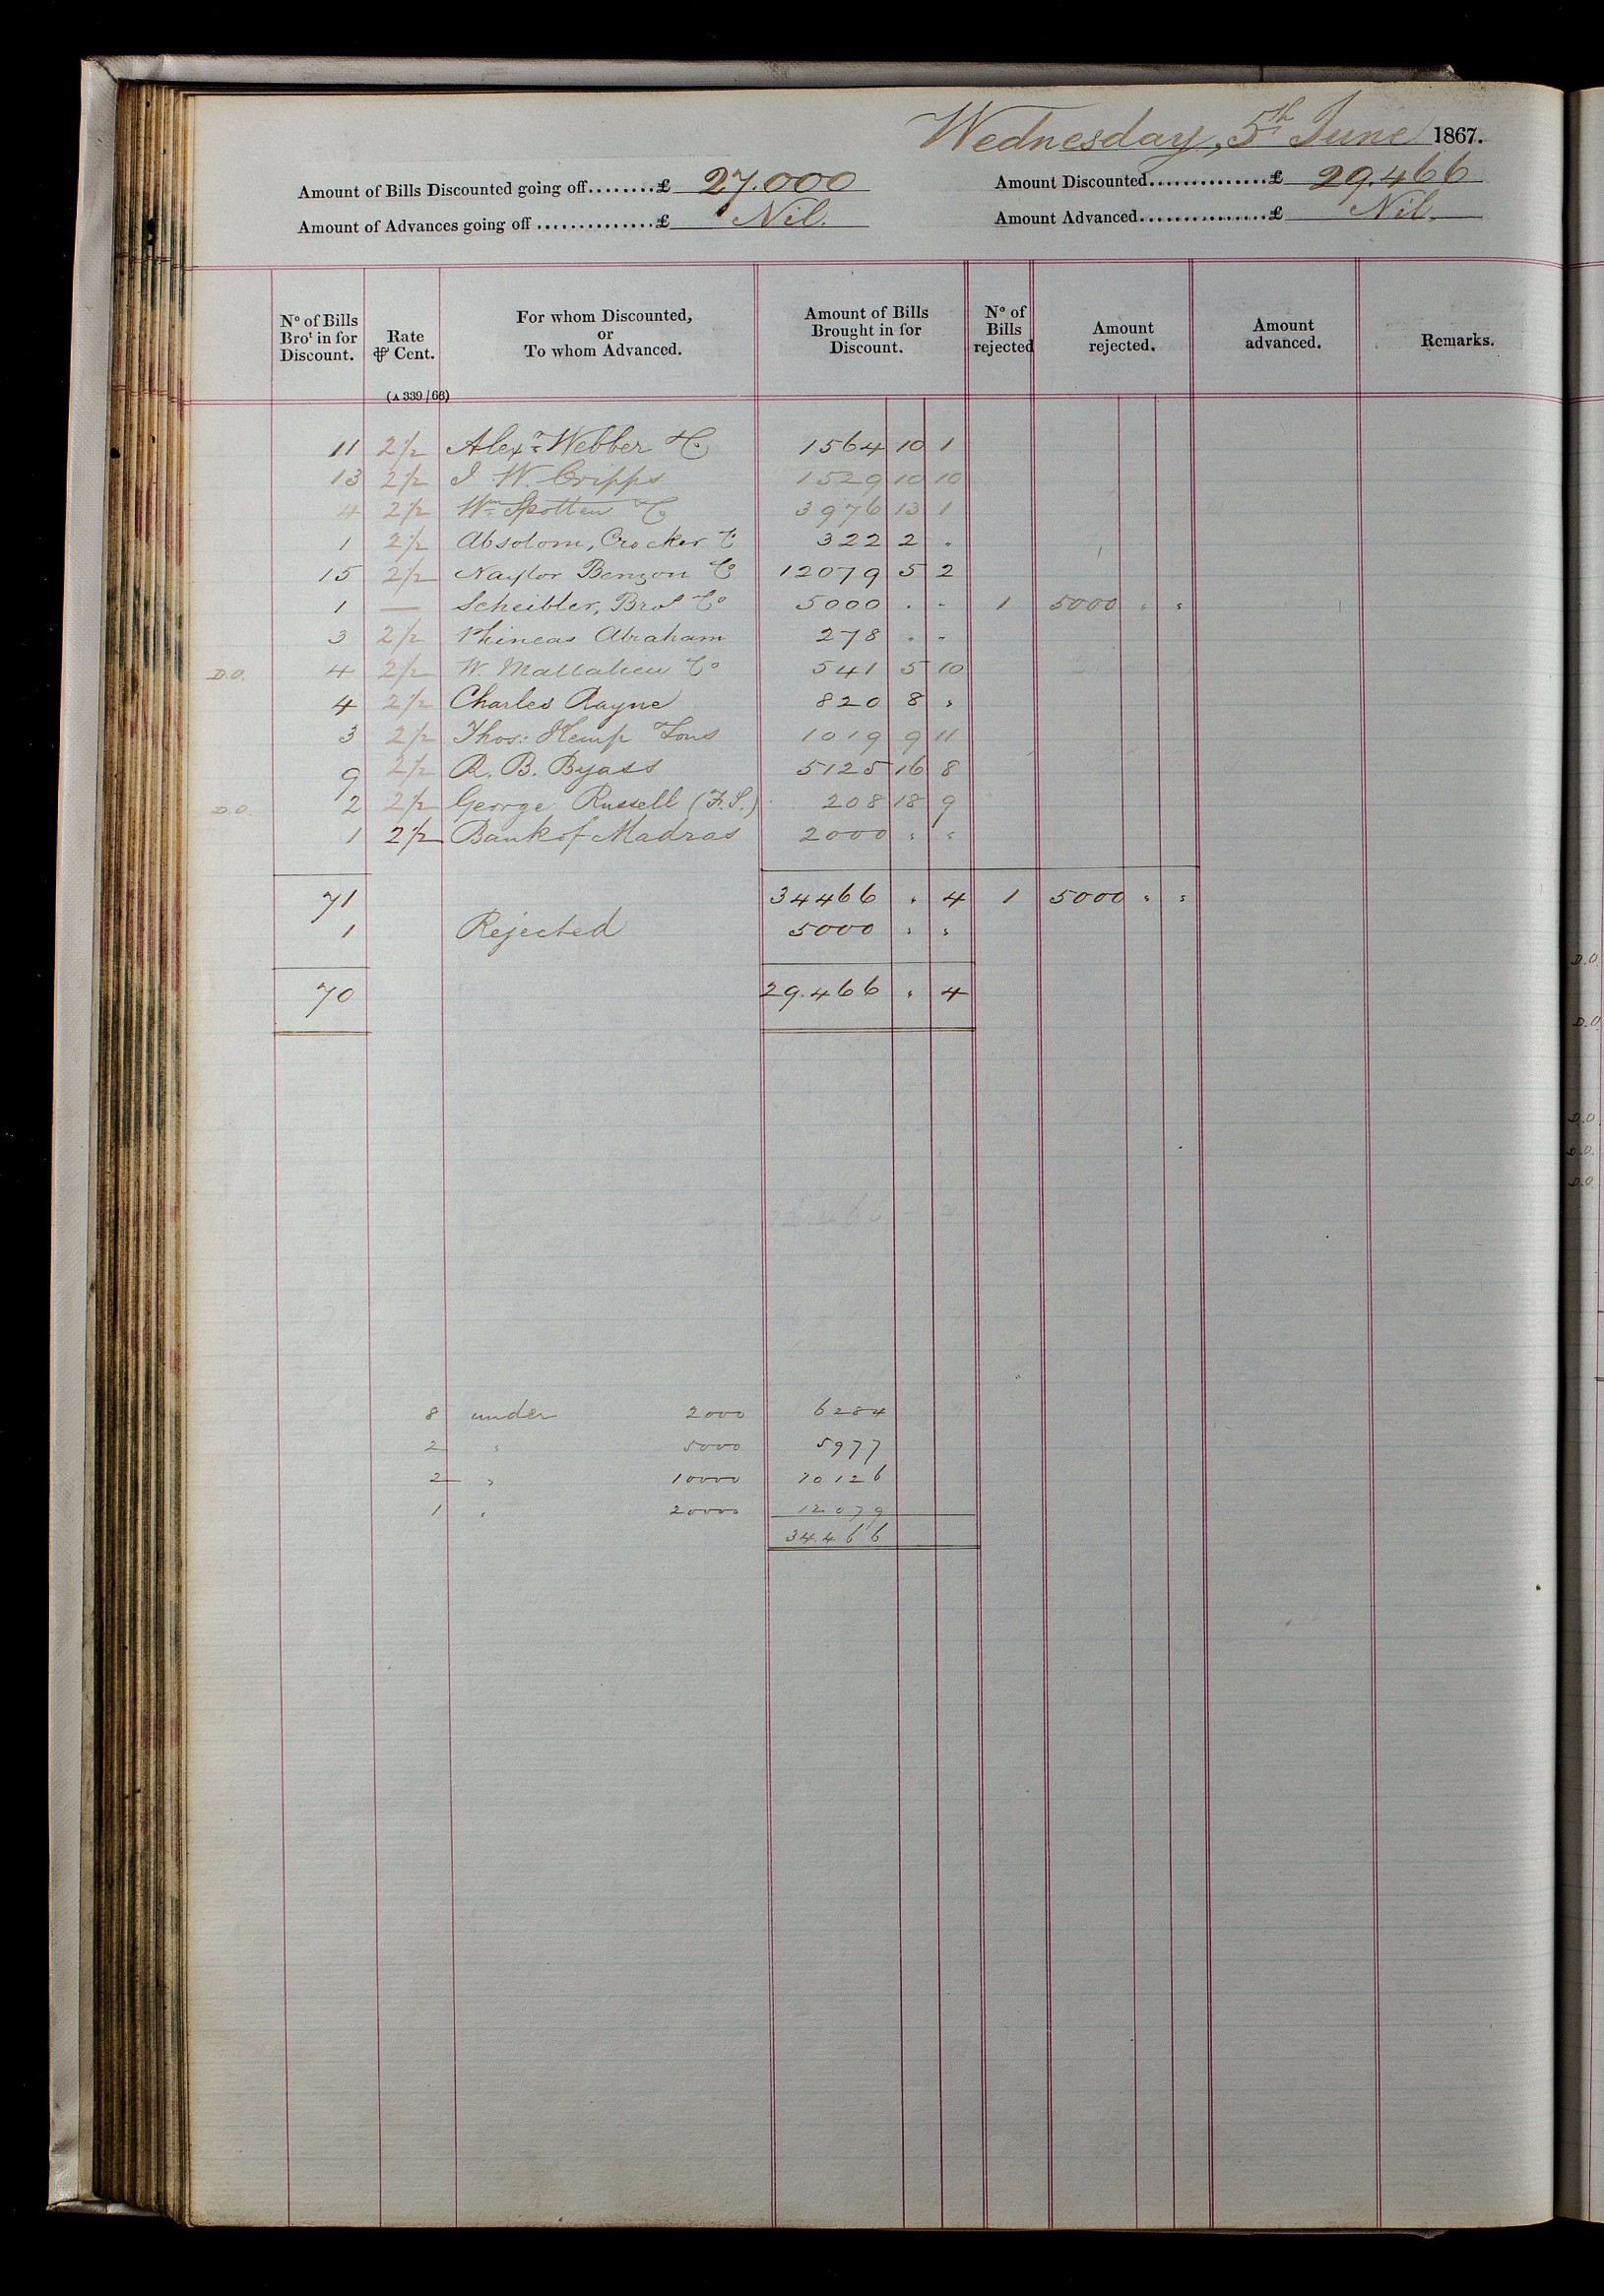 Wednesday, 5th June 1867.
Amount of Bills Discounted going off........£ 27.000 Amount Discounted...............£ 29.466
Amount of Advances going off ..............£ Nil. Amount Advanced................£ Nil.
No of Bills Brot in for Discount. Rate ⅌ Cent. For whom Discounted, or To whom Advanced. Amount of Bills Brought in for Discount. No of Bills rejected Amount rejected. Amount advanced. Remarks.
(A 339/66)
11 2½ Alexr Webber & Co 1564 10 1
13 2½ J. W. Cripps 1529 10 10
4 2½ Wm Spotten & Co 3976 13 1
1 2½ Absolom, Crocker Co 322 2 "
15 2½ Naylor Benzon Co 12079 5 2
1 — Scheibler, Bros Co 5000 . - 1 5000 " "
3 2½ Phineas Abraham 278 . -
D.O. 4 2½ W. Mallalieu Co 541 5 10
4 2½ Charles Rayne 820 8 "
3 2½ Thos: Kemp Sons 1019 9 11
9 2½ R. B. Byass 5125 16 8
D.O. 2 2½ George Russell (F.S.) 208 18 9
1 2½ Bank of Madras 2000 " "
71 34466 " 4 1 5000 " "
1 Rejected 5000 " "
70 29.466 " 4
8 under 2000 6284
2 " 5000 5977
2 " 10000 10126
1 " 20000 12079
34466
D.O.
D.O.
D.O.
D.O.
D.O.